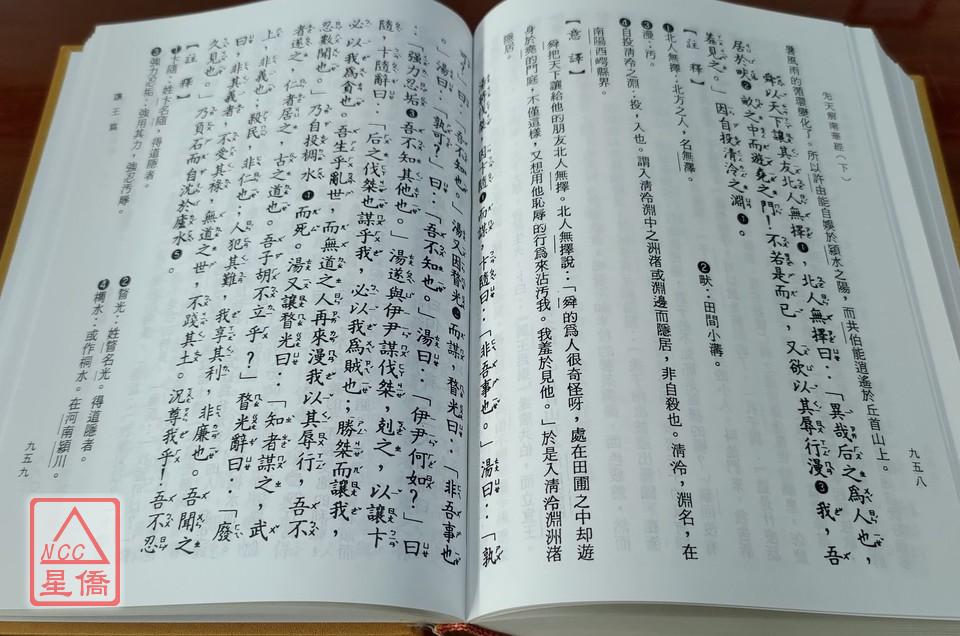 先天解南華經（下）
九五八
暑風雨的循環變化了。所以許由能自娛於潁水之陽，而共伯能逍遙於丘首山上。
舜以天下讓其友北人無擇❶，北人無擇曰：「異哉后之為人也，
居於畎❷畝之中而遊堯之門！不若是而已，又欲以其辱行漫❸我，吾
羞見之。」因自投清泠之淵❹。
【註釋】
❶北人無擇：北方之人，名無澤。　❷畎：田間小溝。
❸漫：汚。
❹自投清泠之淵：投，入也。謂入清泠淵中之洲渚或淵邊而隱居，非自殺也。清泠，淵名，在
南陽西崿縣界。
【意譯】
舜把天下讓給他的朋友北人無擇。北人無擇說：「舜的為人很奇怪呀，處在田圃之中却遊
身於堯的門庭，不僅這樣，又想用他恥辱的行為來沾汚我。我羞於見他。」於是入清泠淵洲渚
隱居。
而謀，卞隨曰：「非吾事也。」湯曰：「孰
曰：「吾不知也。」湯又因瞀光❷而謀，瞀光曰：「非吾事也
。」湯曰：「孰可？」曰：「吾不知也。」湯曰：「伊尹何如？」曰
：「强力忍垢❸吾不知其他也。」湯遂與伊尹謀伐桀，剋之，以讓卞
隨，卞隨辭曰：「后之伐桀也謀乎我，必以我為賊也；勝桀而讓我，
必以我為貪也。吾生乎亂世，而無道之人再來漫我以其辱行，吾不
忍數聞也。」乃自投椆水❹而死。湯又讓瞀光曰：「知者謀之，武
者遂之，仁者居之，古之道也。吾子胡不立乎？」瞀光辭曰：「廢
上，非義也；殺民，非仁也；人犯其難，我享其利，非廉也。吾聞之
曰，非其義者，不受其祿，無道之世，不踐其土。況尊我乎！吾不忍
久見也。」乃負石而自沈於廬水❺。
【註釋】
❶卞隨：姓卞名隨，得道隱者。　❷瞀光：姓瞀名光。得道隱者。
❸強力忍垢：強用其力，強忍汚辱。　❹椆水：或作桐水。在河南潁川。
讓王篇
九五九
NCC
星僑